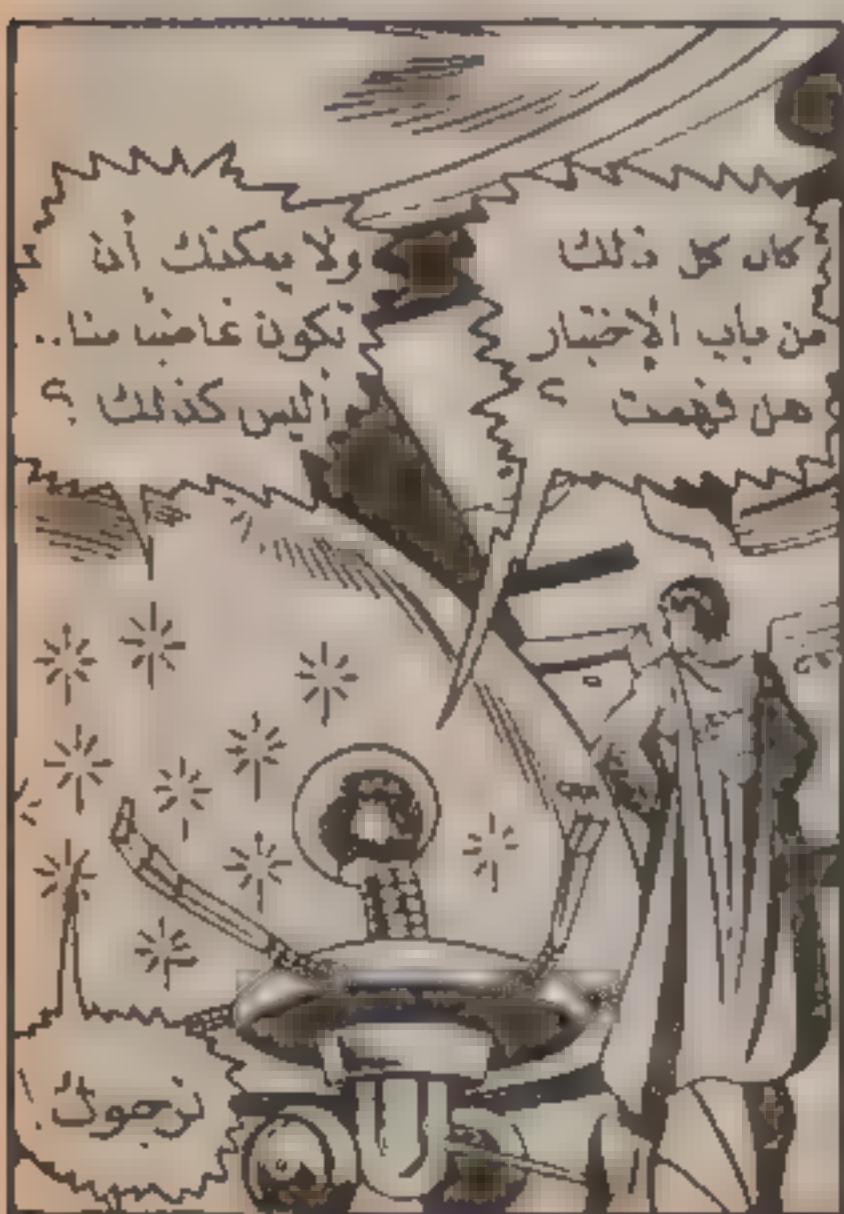 كان كل ذلك
من باب الإختبار
هل فهمت ؟
ولا يمكنك أن
تكون غاضبا منا..
أليس كذلك ؟
نرجوك